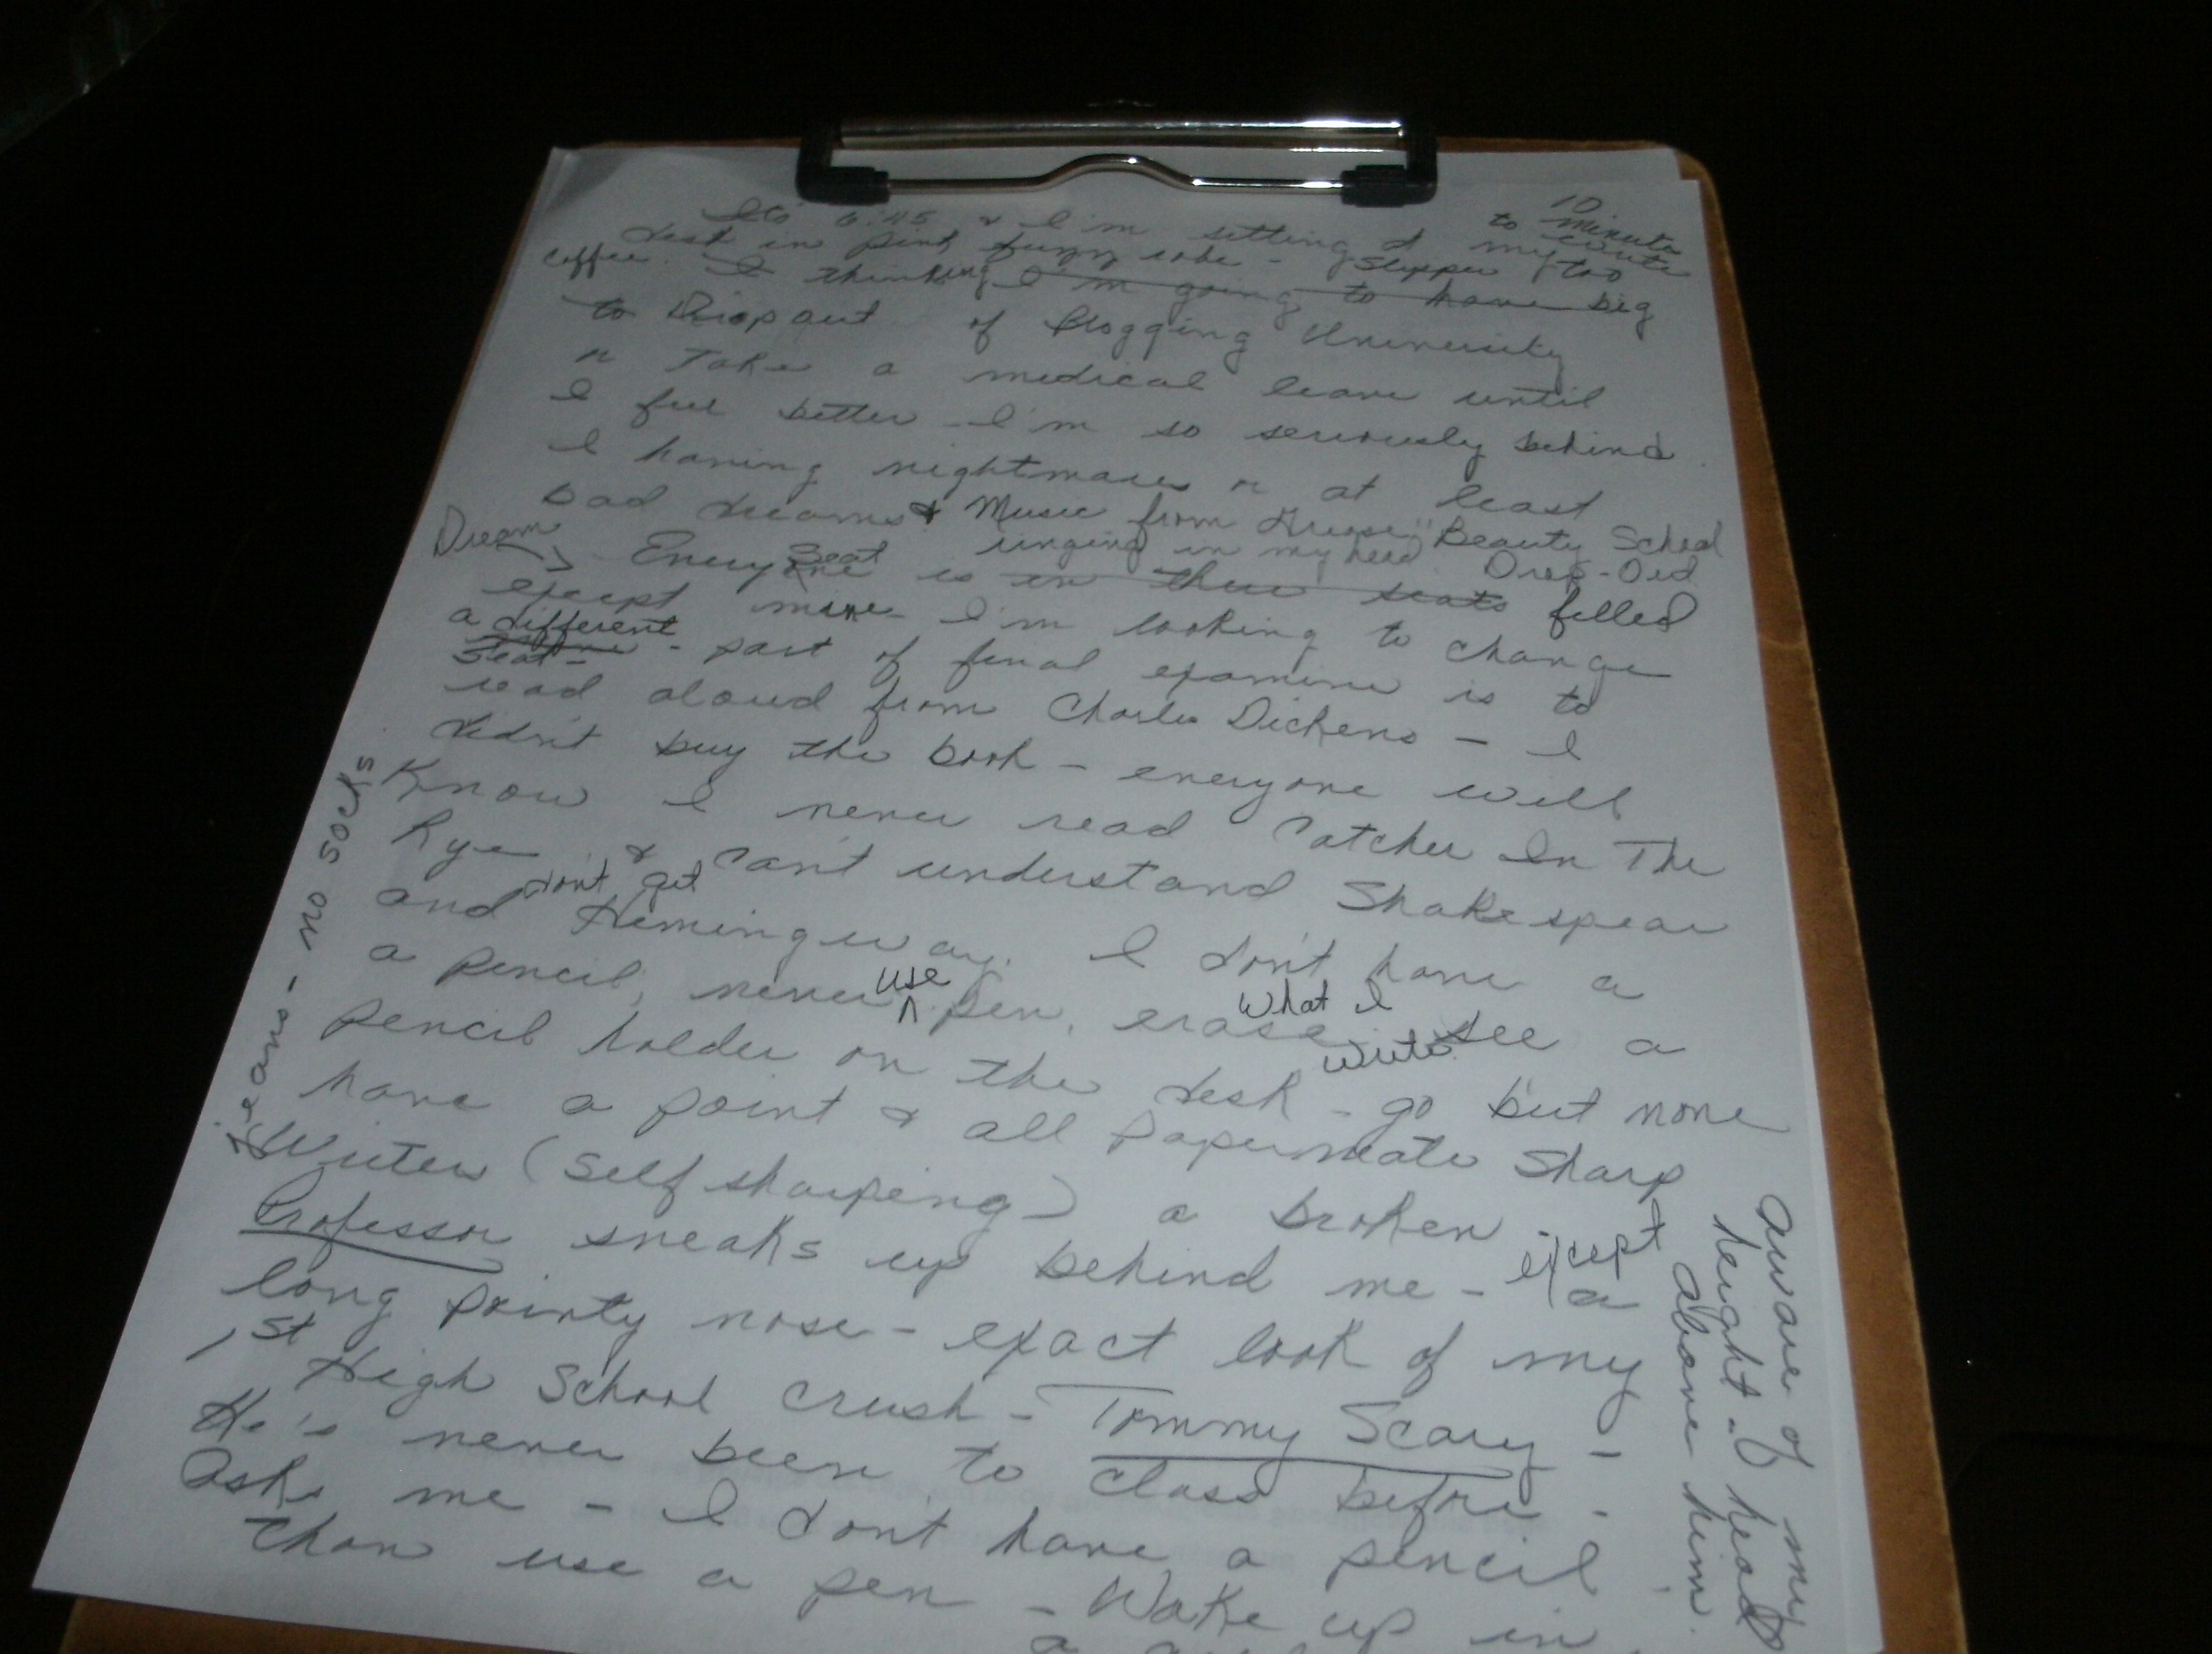 10
minute
to write
Its 6:45 & I'm setting at my
desk in pink fuzzy robe - slipper too
coffee. I thinking I'm going to have big
to Dropout of Blogging University
or Take a medical leave until
I feel better - I'm so seriously behind.
I having nightmares or at least
bad dreams & Music from Grease "Beauty School
ringing in my head. Drop-Out
Dream
Every seat is in their seats filled
except mine - I'm looking to change
a different
seat - part of final examine is to
read aloud from Charles Dickens - I
didn't buy the book - everyone will
Know I never read Catcher In The
Rye & can't understand Shakespear
and don't get Hemingway. I don't have a
a pencil, never use pen, erase what I
write. See a
pencil holder on the desk - go but none
have a point & all papermate Sharp
Writer (Self sharping) a broken -
Professor sneaks up behind me - except a
long pointy nose - exact look of my
1st High School crush - Tommy Scary -
He's never been to class before.
Asks me - I don't have a pencil.
than use a pen - Wake up in
a
jeans - no socks
aware of my
height - of head
above him.